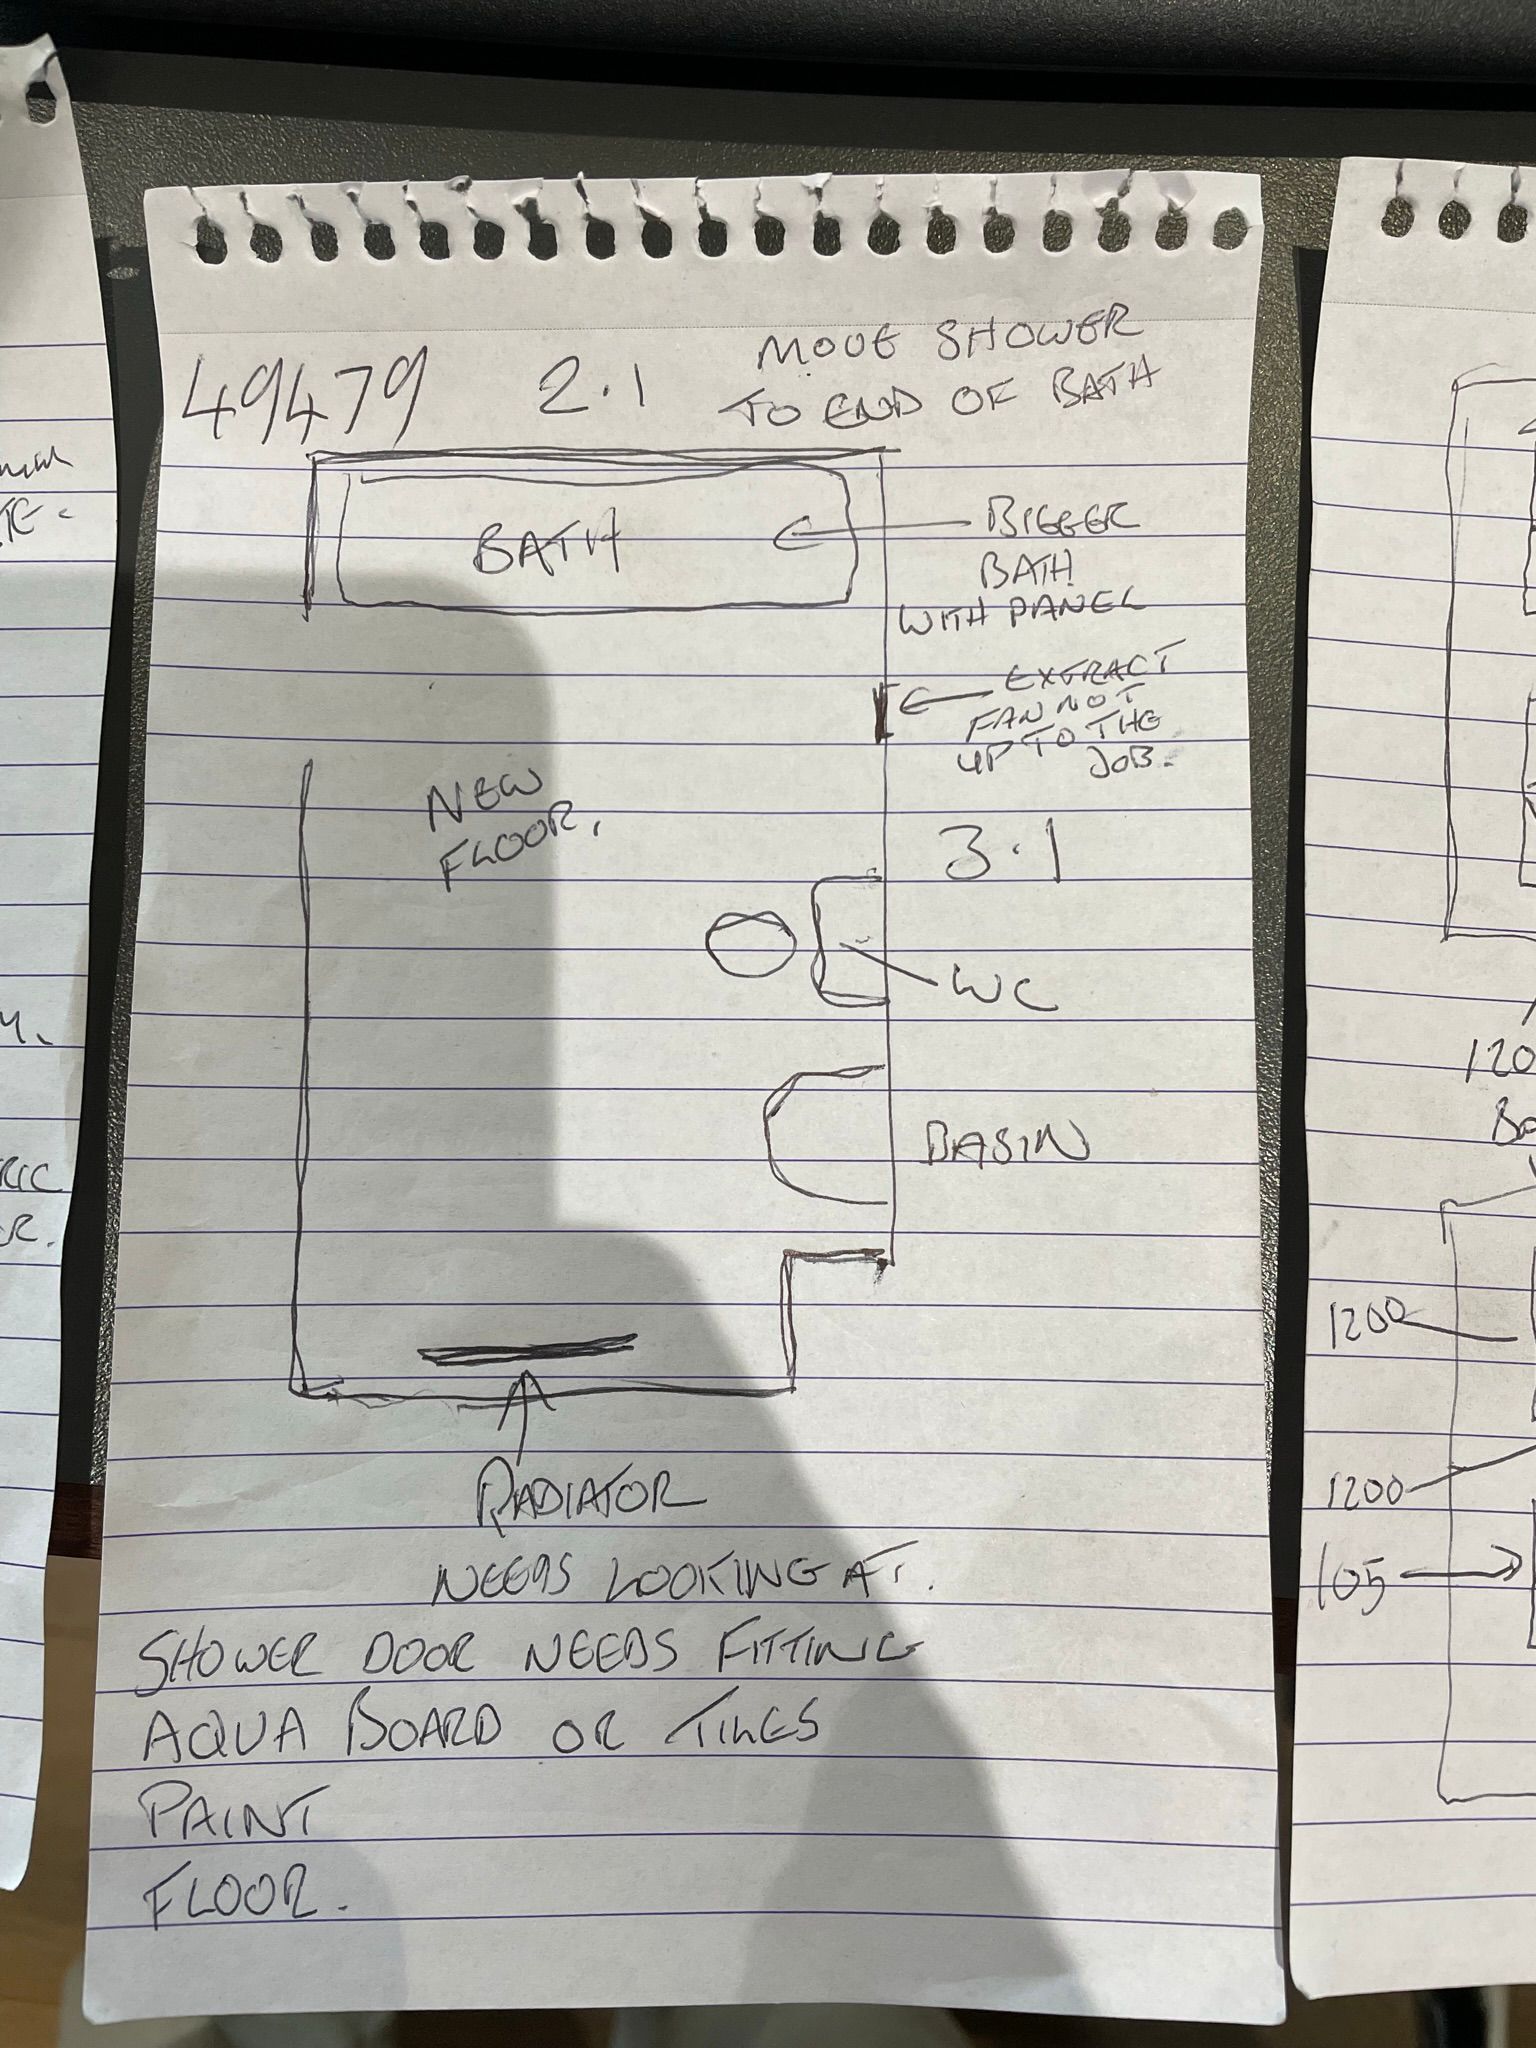 49479
2.1
MOVE SHOWER
TO END OF BATH
BATH
BIGGER
BATH
WITH PANEL
EXTRACT
FAN NOT
UP TO THE
JOB.
NEW
FLOOR.
3.1
WC
BASIN
RADIATOR
NEEDS LOOKING AT.
SHOWER DOOR NEEDS FITTING
AQUA BOARD OR TILES
PAINT
FLOOR.
120
1200
1200
105